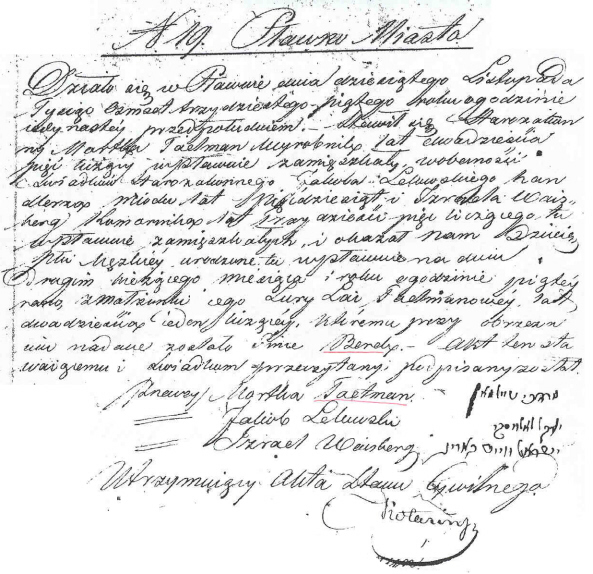 N. 19. Sławno Miasto
Działo się w Sławnie dnia dziesiątego Listopada
Tysiąc Ośmset trzydziestego piątego roku o godzinie
jedynastej przed południem. – Stawił się Starozakon
ny Mortka Taetman Wyrobnik lat dwadzieścia
pięć liczący w Sławnie zamieszkały w obecności
Świadków Starozakonnego Jakoba Lelewskiego han
dlerza miodu lat pięćdziesiąt i Izraela Wais-
berg Komornika lat trzydzieści pięć liczącego, tu
w Sławnie zamieszkałych, i okazał nam Dziecię
płci Męzkiej urodzone tu w Sławnie na dniu
Drugim bieżącego miesiąca i roku o godzinie piątej
rano, z małżonki jego Sury Lai Taetmanowey, lat
dwadzieścia jeden liczącey, któremu przy obrzeza
niu nadane zostało Imie Berek. – Akt ten sta
waiącemu i Świadkom przeczytany i podpisany został.
Mortka Taetman מרדכי
Jakob Lelewski
Izrael Waisberg ישראל
Utrzymuiący Akta Stanu Cywilnego